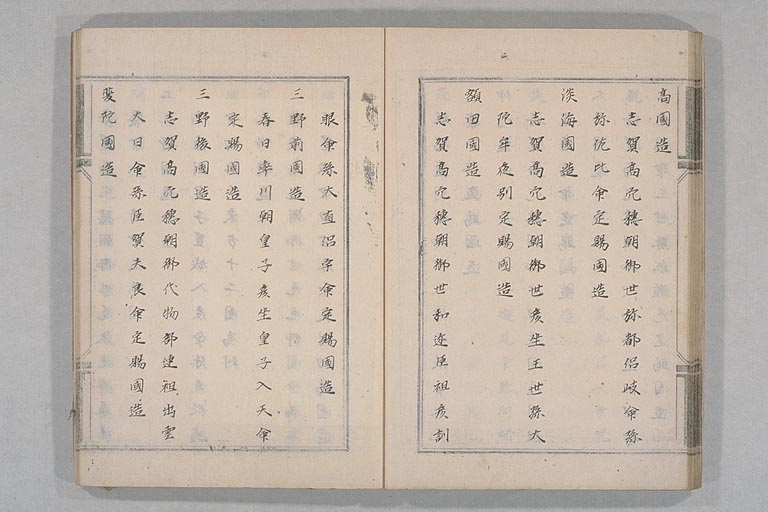 高國造
志賀高穴穗朝御世弥都侶岐命孫
久弥佐比命定賜國造
淡海國造
志賀高穴穗朝御世彦坐王世孫大
陀牟夜別定賜國造
額田國造
志賀高穴穗朝御世和迩臣祖彦訓
眼命孫大直侶宇命定賜國造
三野前國造
春日率川朝皇子彦坐皇子八天命
定賜國造
三野後國造
志賀高穴穗朝御代物部連祖出雲
大臣命孫臣賀夫良命定賜國造
斐陀國造